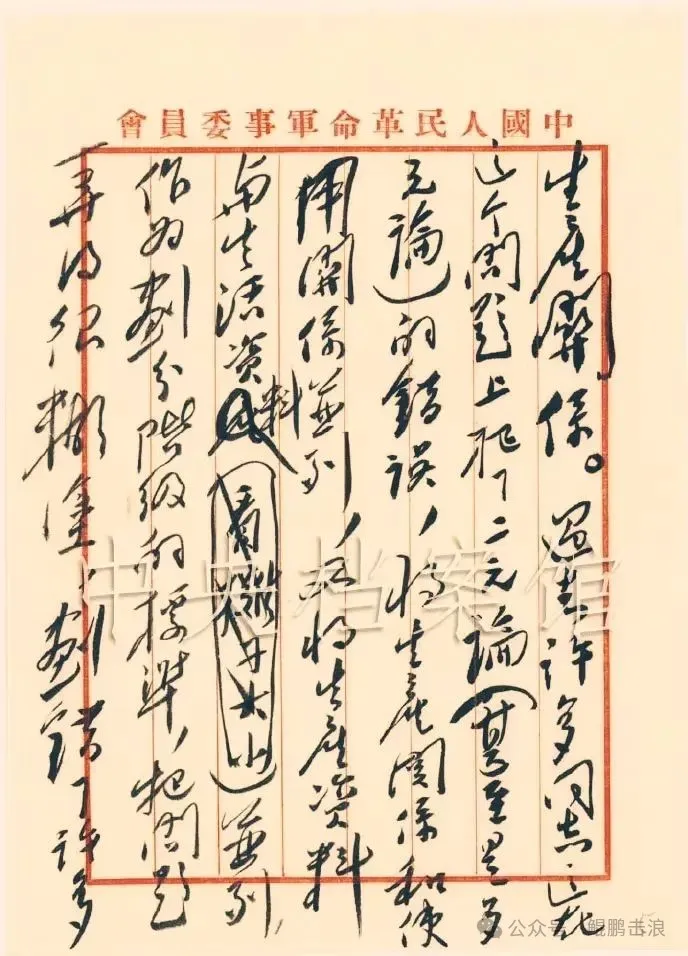 中國人民革命軍事委員會
生產關係。過去許多同志在
这个問題上犯了二元論(甚至是多
元論)的錯誤,將生產関係和使
用関係並列,又將生產資料
与生活資料並列,
作为劃分階級的標準,把問題
弄得很糊塗,劃錯了許多
中央档案馆
公众号 鲲鹏击浪